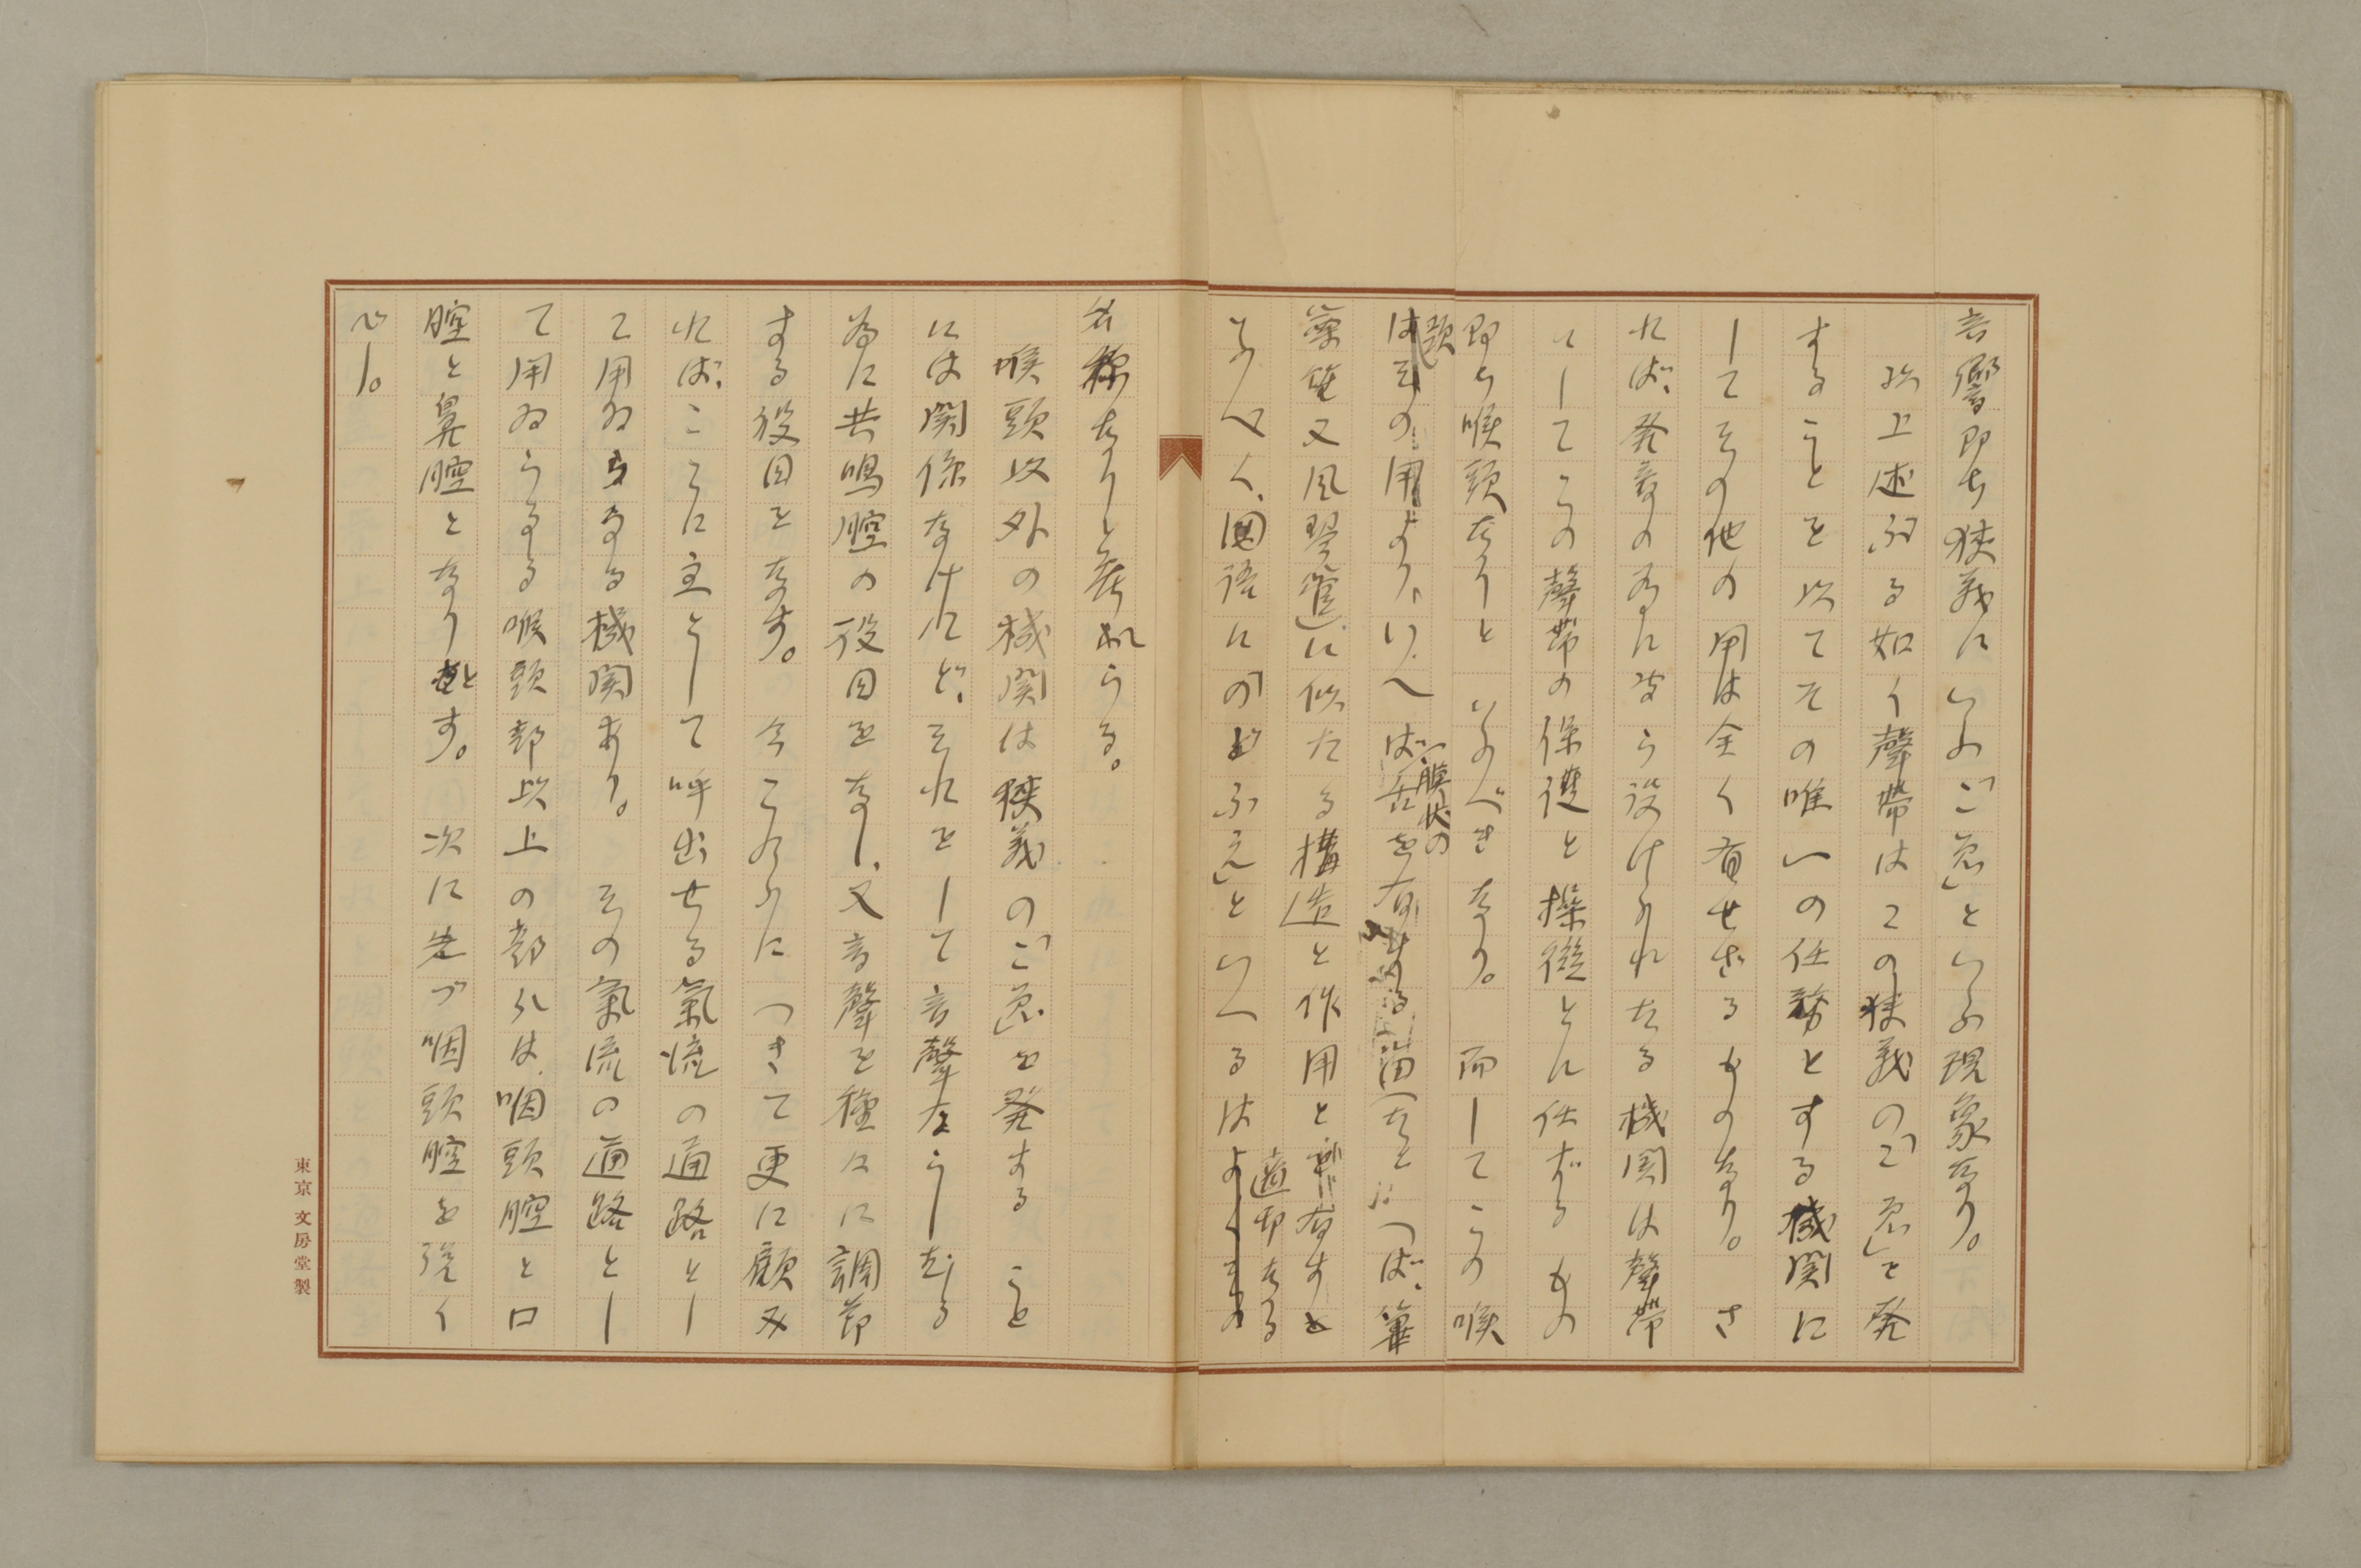 音響即ち狭義にいふ「こゑ」といふ現象なり。
以上述ぶる如く聲帯はこの狭義の「こゑ」を発
することを以てその唯一の任務とする機関に
してその他の用は全く有せざるものなり。さ
れば、発音の為に専ら設けられたる機関は聲帯
にしてこの聲帯の保護と操縦とに任ずるもの
即ち喉頭なりといふべきなり。而してこの喉
頭はその用よりいへば、膜状の舌を有する笛
篳篥又風琴に似たる構造と作用とを有すと
いふべく、国語に「のどぶえ」といへるは適切なる
名称なりと考へらる。
喉頭以外の機関は狭義の「こゑ」を発すること
には関係なけれど、それをして音聲たらしむる
為に共鳴腔の役目をなし、又音聲を種々に調節
する役目をなす。今これらにつきて更に顧み
れば、ここに主として呼出せる氣流の通路とし
て用ゐらるる機関あり。その氣流の通路とし
て用ゐらるる喉頭部以上の部分は、咽頭腔と口
腔と鼻腔となりとす。次に先づ咽頭腔を説く
べし。
東京 文房堂製